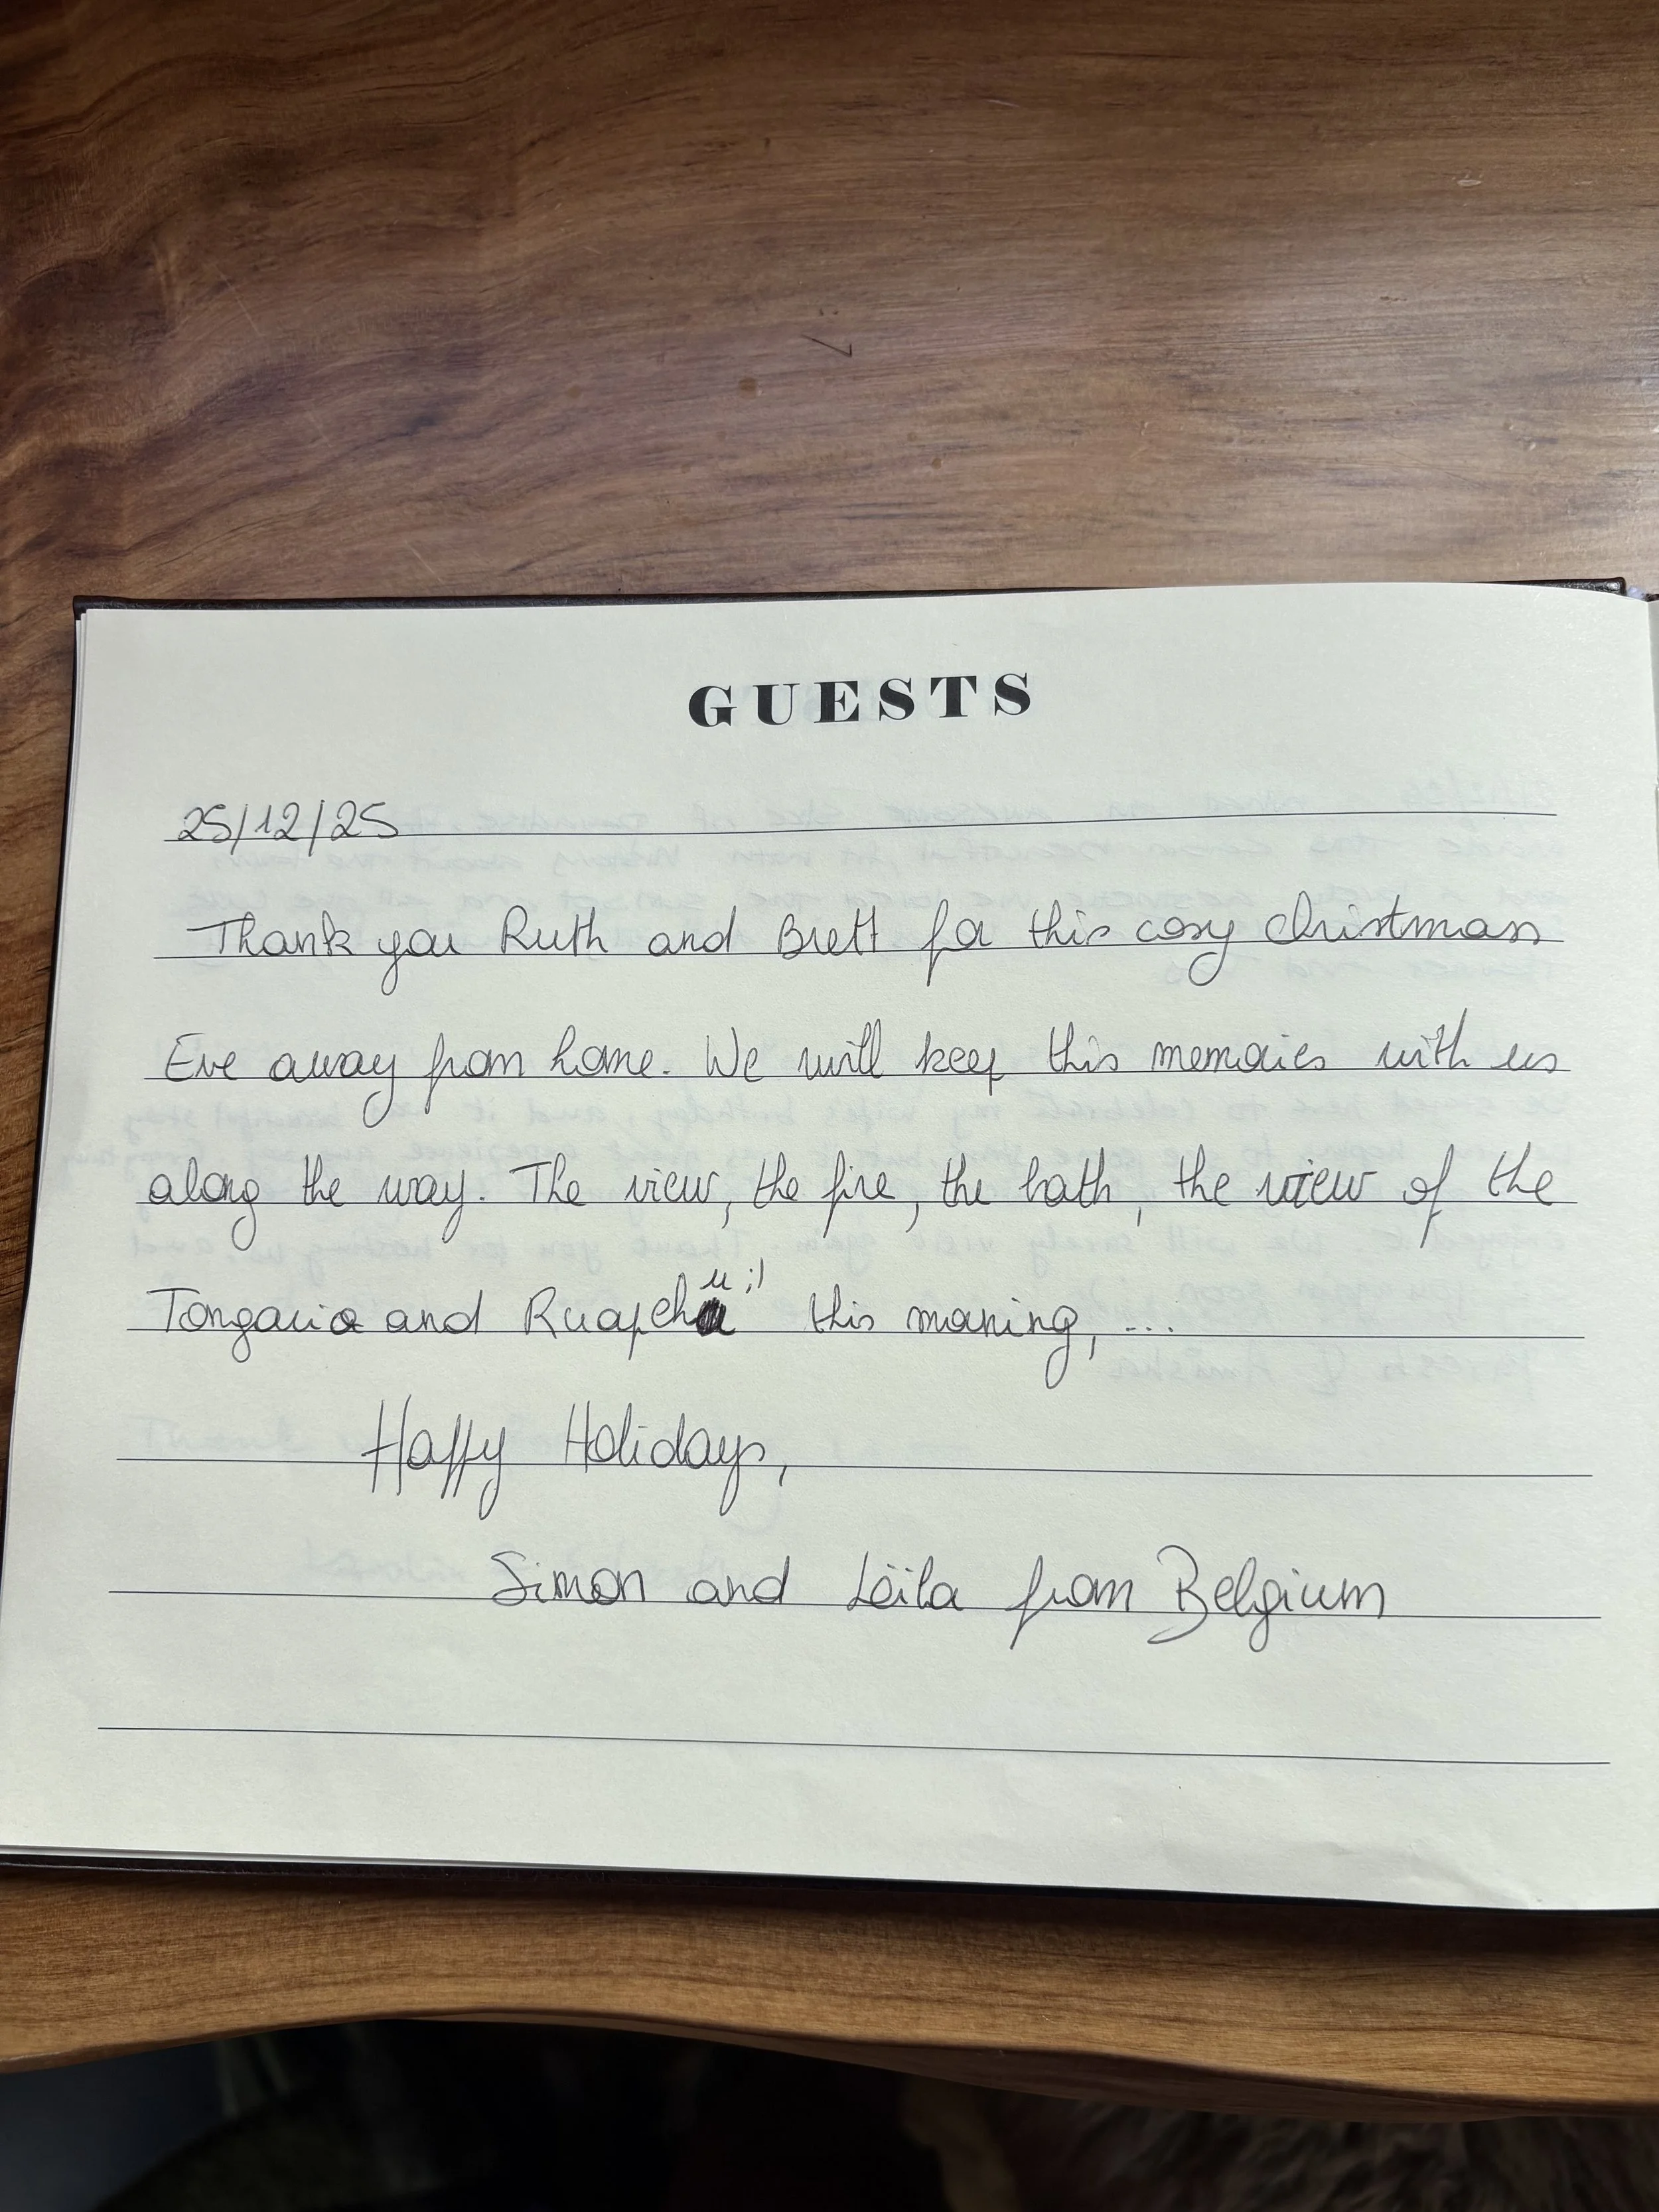 GUESTS
25/12/25
Thank you Ruth and Brett for this cosy christmas
Eve away from home. We will keep this memories with us
along the way. The view, the fire, the bath, the view of the
Tongario and Ruapehu ;) this morning, ...
Happy Holidays,
Simon and Leïla from Belgium